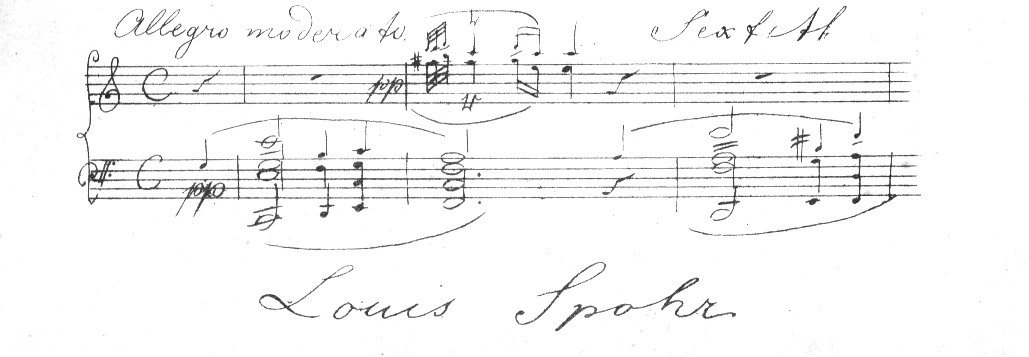 Allegro moderato. Sextett.
pp
pp
Louis Spohr.